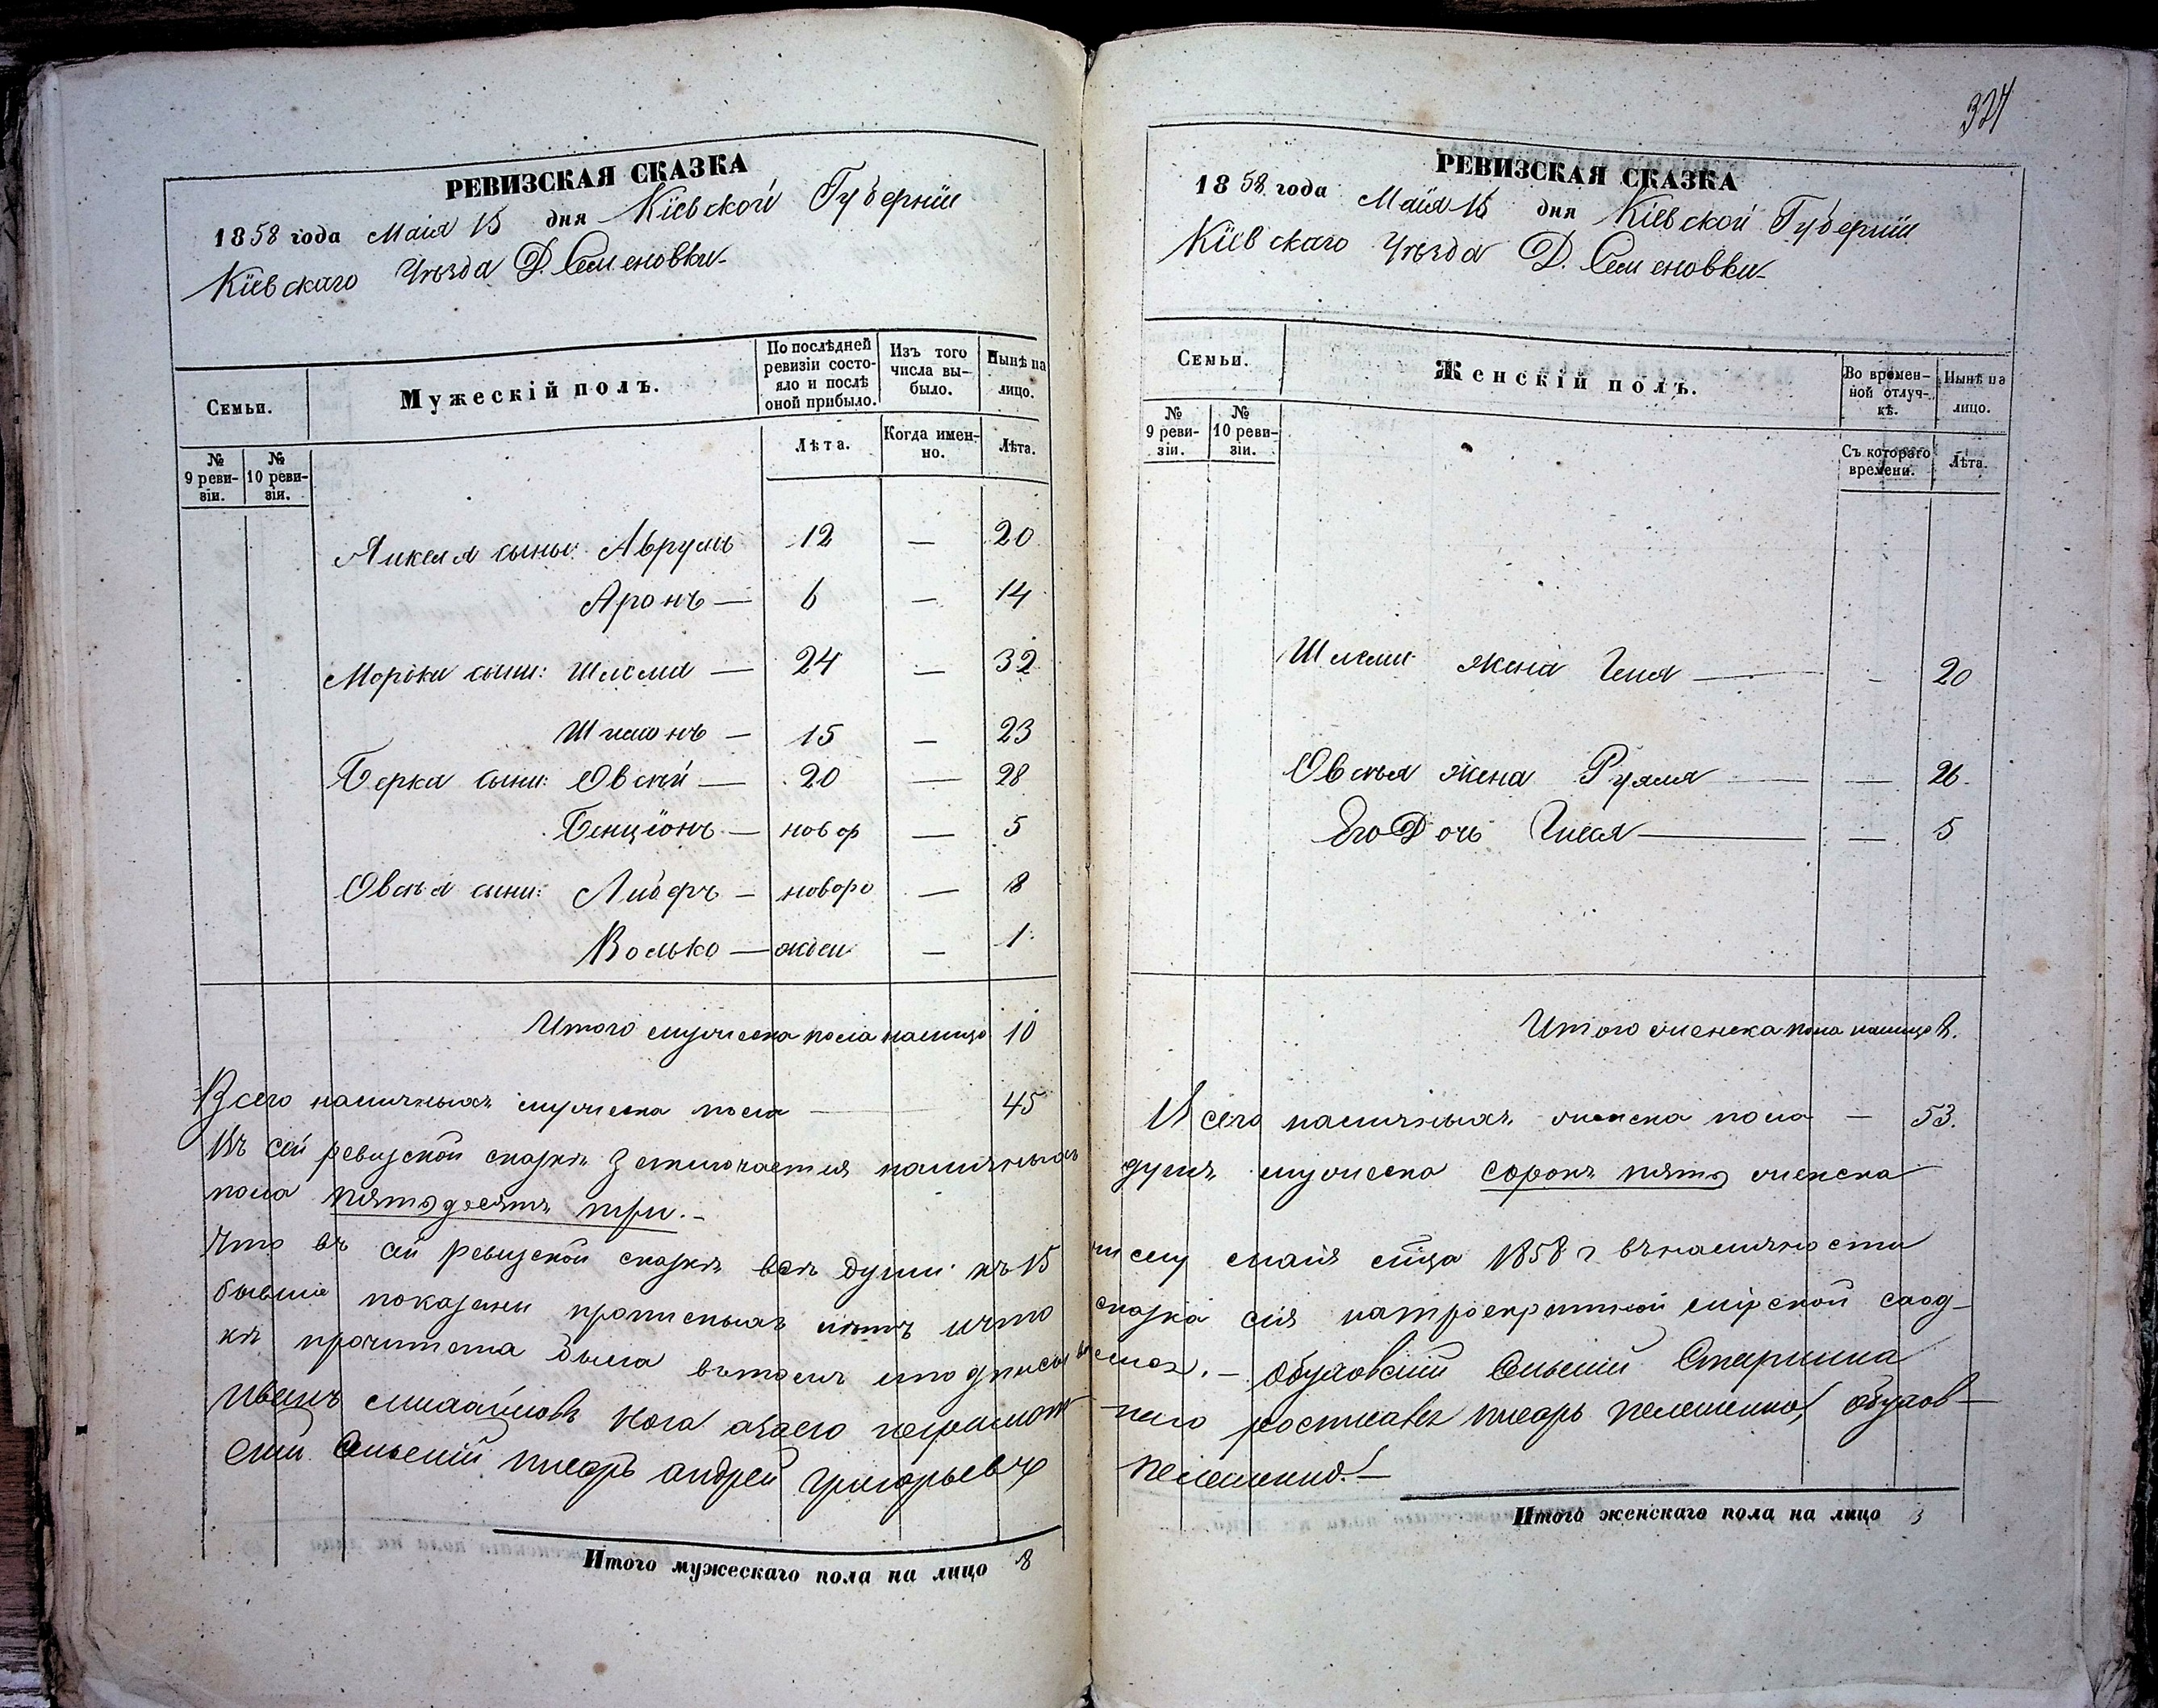 324
РЕВИЗСКАЯ СКАЗКА
1858 года Маія 15 дня Кіевской Губерніи
Кіевскаго Уѣзда Д. Семеновки
Семьи.
Мужескій полъ.
По послѣдней ревизіи состояло и послѣ оной прибыло.
Изъ того числа выбыло.
Нынѣ на лицо.
№ 9 ревизіи.
№ 10 ревизіи.
Лѣта.
Когда именно.
Лѣта.
Янкеля сыны: Аврумъ 12 — 20
Аронъ — 6 — 14
Морѣки сыни: Шлема — 24 — 32
Шимонъ — 15 — 23
Берка сыни: Овсѣй — 20 — 28
Бенціонъ — новор — 5
Овсѣя сыни: Либеръ — новоро — 8
Волько — — 1
Итого мужеска пола налицо 10
Всего наличныхъ мужеска пола — 45
Въ сей ревизской сказкѣ Заключается наличныхъ
пола пятьдесятъ три. —
Что въ сей ревизской сказкѣ всѣ души къ 15
бывшіе показаны прописныхъ нѣтъ ичто
кѣ прочитана была вътомъ иподписы
Иванъ Михайловъ Нога азаего неграмот
Сельскій писарь андрей Григорьевъ
Итого мужескаго пола на лицо 8
РЕВИЗСКАЯ СКАЗКА
1858 года Маія 15 дня Кіевской Губерніи
Кіевскаго Уѣзда Д. Семеновки
Семьи.
Женскій полъ.
Во временной отлучкѣ.
Нынѣ на лицо.
№ 9 ревизіи.
№ 10 ревизіи.
Съ котораго времени.
Лѣта.
Шлемы жена Геня — - 20
Овсѣя жена Рухля — — 26
Его Дочь — — 5
Итого женска пола налицо 8.
Всего наличныхъ женска пола — 53.
душъ мужеска сорокъ пять женска
числу маія мца 1858 г вналичности
сказка сія натроекратной мірской сход-
Обуховскій Сельскій Старшина
наго росписався писарь Пелешенко, обухов-
Пелешенко. —
Итого женскаго пола на лицо 3